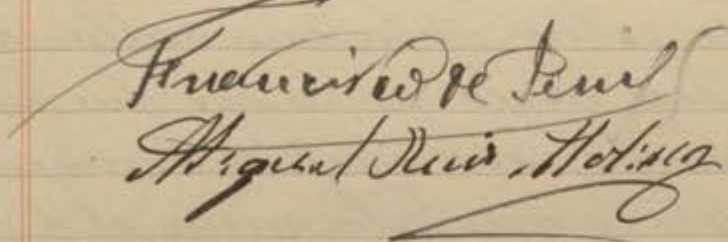 Francisco de
Miguel Ruiz Molina